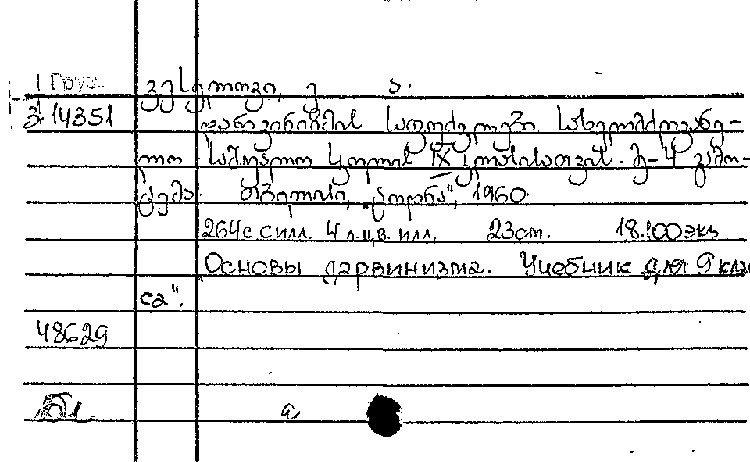 1 груз.
ვესელოვი, ე ა.
3. 14351
დარვინიზმის საფუძვლები. სახელმძღვანე-
ლო საშუალო სკოლის IX კლასისათვის. მე-4 გამო-
ცემა. თბილისი, „ცოდნა“, 1960.
264с. с илл. 4 л.цв. илл. 23см. 18.100 экз
Основы дарвинизма. Учебник для 9 клас
са".
48629